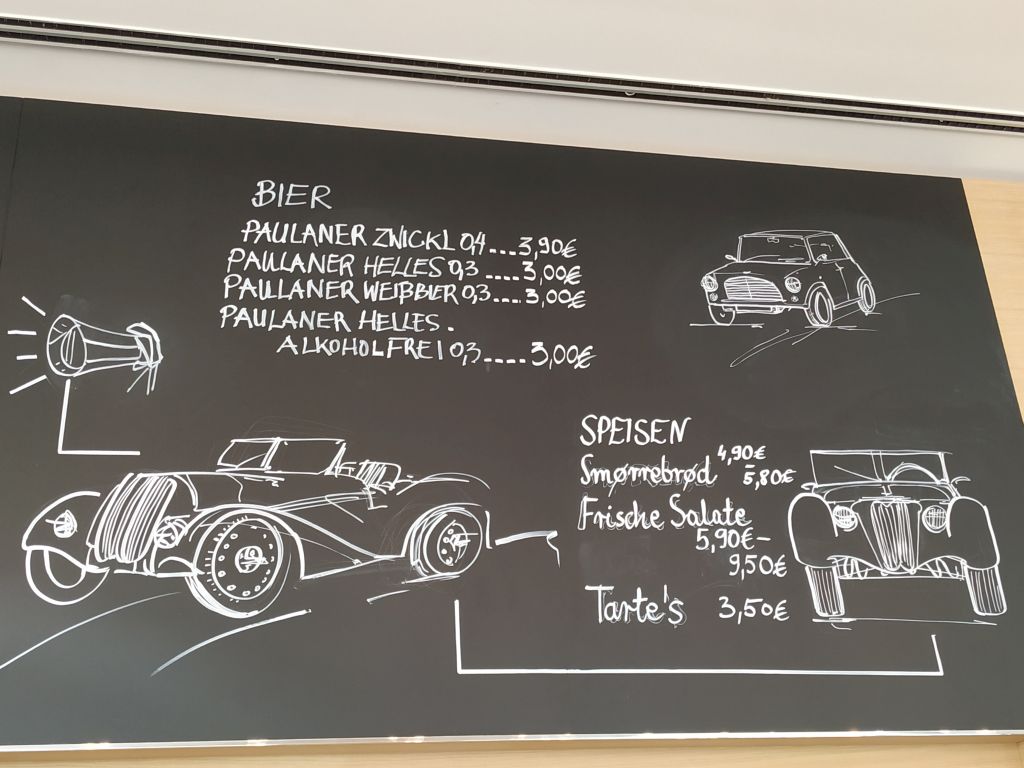 BIER
PAULANER ZWICKL 0,4...3,90€
PAULANER HELLES 0,3.....3,00€
PAULANER WEIßBIER 0,3....3,00€
PAULANER HELLES.
ALKOHOLFREI 0,3.....3,00€
SPEISEN
Smørrebrød 4,90€ -
5,80€
Frische Salate
5,90€-
9,50€
Tarte's 3,50€